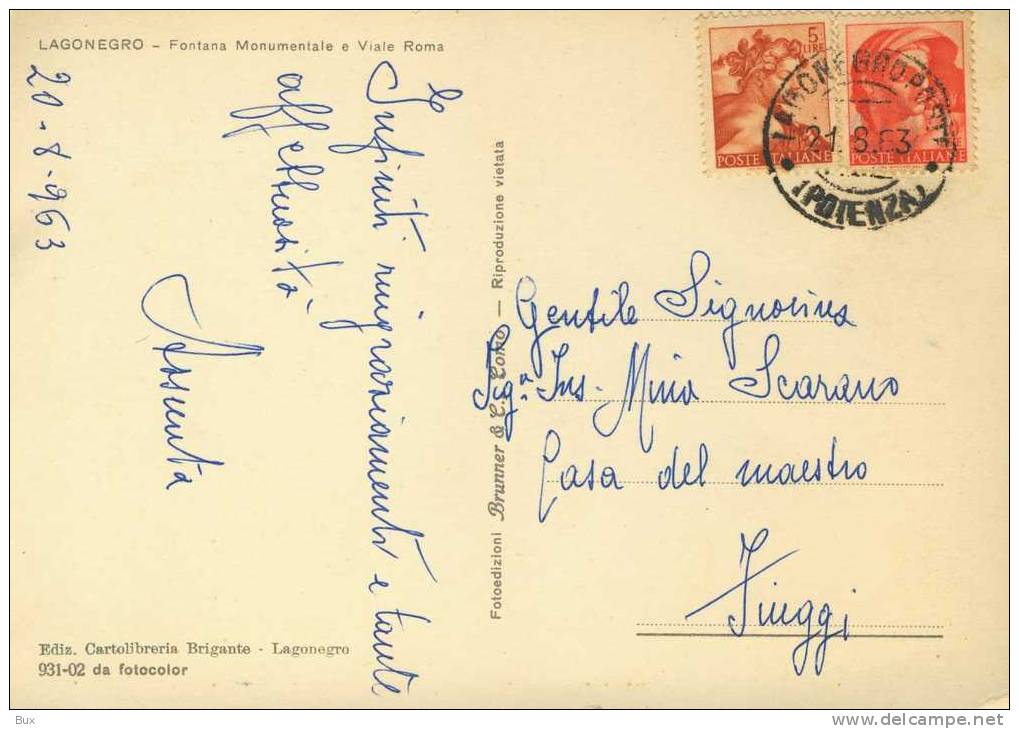 LAGONEGRO – Fontana Monumentale e Viale Roma
20-8-963
Infiniti ringraziamenti e tante
affettuosità
Assunta
Fotoedizioni Brunner & C. Como — Riproduzione vietata
5
LIRE
POSTE ITALIANE
POSTE ITALIANE
LAGONEGRO POSTE
21.8.63
(POTENZA)
Gentile Signorina
Sig.na Ins. Mina Scarano
Casa del maestro
Fiuggi
Ediz. Cartolibreria Brigante - Lagonegro
931-02 da fotocolor
Bux
www.delcampe.net